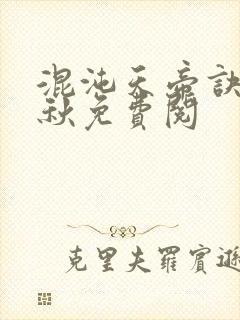 混沌天帝訣
秋免費閱
克里夫羅賓遜